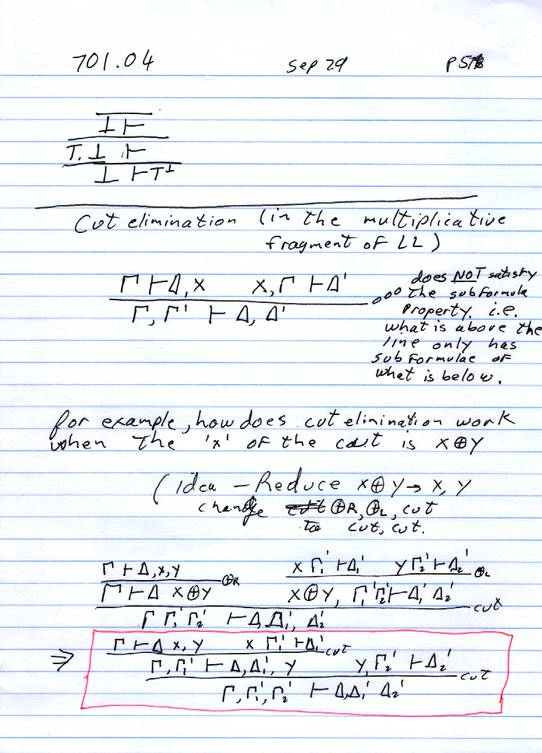 701.04 Sep 29 PS
⊥ ⊢
T, ⊥ ⊢
⊥ ⊢ T⊥
Cut elimination (in the multiplicative
fragment of LL)
Γ ⊢ Δ, X X, Γ ⊢ Δ'
Γ, Γ' ⊢ Δ, Δ'
does NOT satisfy
the subformula
Property. i.e.
what is above the
line only has
subformulae of
what is below.
for example, how does cut elimination work
when the 'x' of the cut is X⊕Y
(idea - Reduce X⊕Y → X, Y
change ⊕R, ⊕L, cut
to cut, cut.
Γ ⊢ Δ, X, Y X Γ₁' ⊢ Δ₁' Y Γ₂' ⊢ Δ₂' ⊕L
Γ ⊢ Δ X⊕Y ⊕R X⊕Y, Γ₁' Γ₂' ⊢ Δ₁' Δ₂' cut
Γ Γ₁' Γ₂' ⊢ Δ, Δ₁', Δ₂'
⇒ Γ ⊢ Δ X, Y X Γ₁' ⊢ Δ₁' cut
Γ, Γ₁' ⊢ Δ, Δ₁', Y Y, Γ₂' ⊢ Δ₂' cut
Γ, Γ₁', Γ₂' ⊢ Δ, Δ₁' Δ₂'